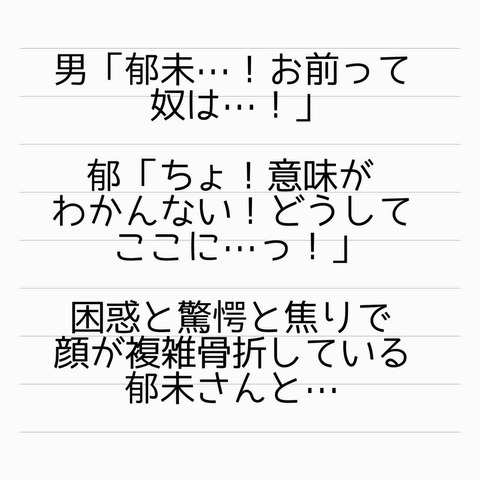 男「郁未…！お前って
奴は…！」
郁「ちょ！意味が
わかんない！どうして
ここに…っ！」
困惑と驚愕と焦りで
顔が複雑骨折している
郁未さんと…